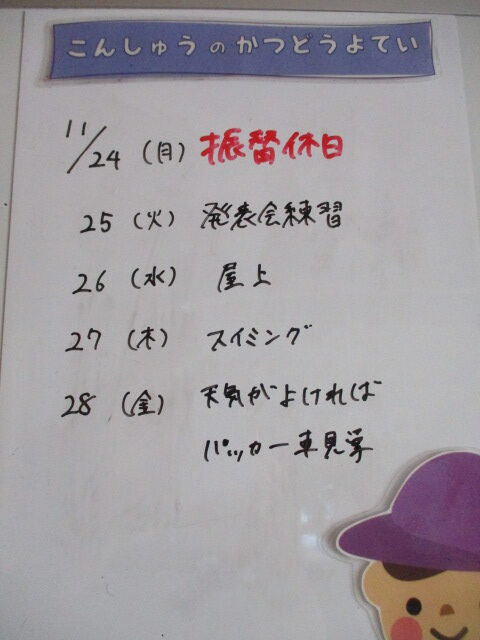 こんしゅうのかつどうよてい
11/24 (月) 振替休日
25 (火) 発表会練習
26 (水) 屋上
27 (木) スイミング
28 (金) 天気がよければ
パッカー車見学